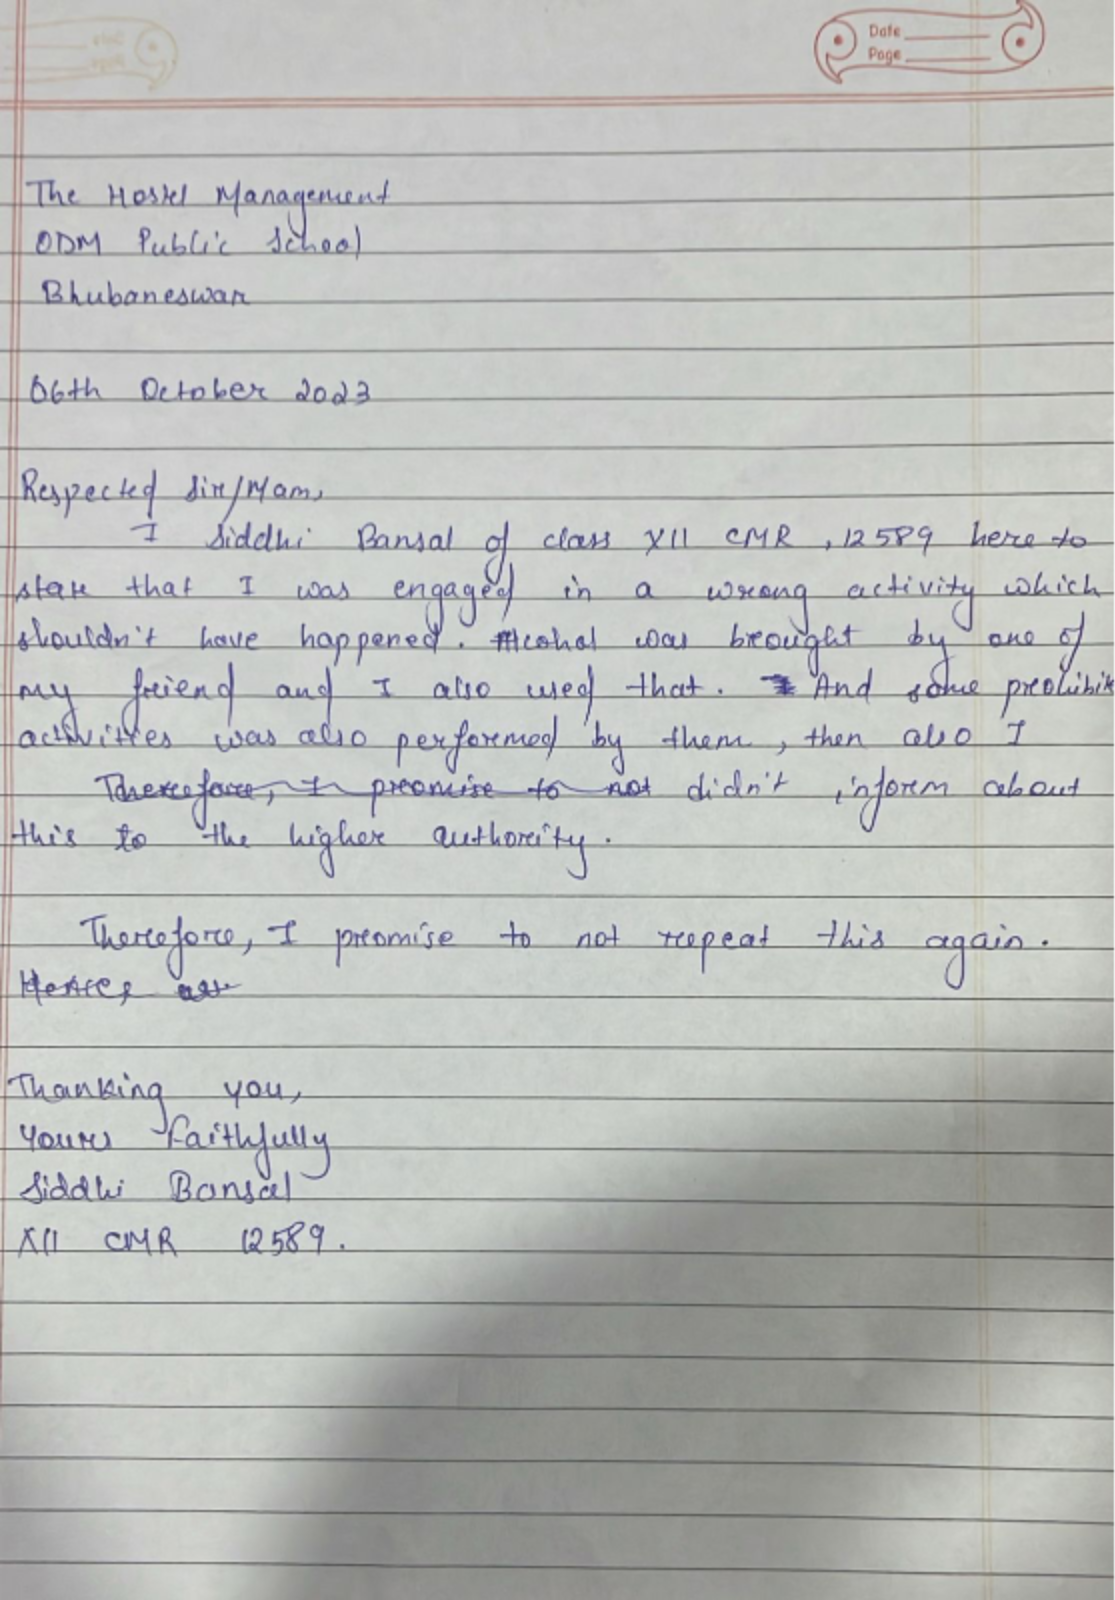 Date
Page
The Hostel Management
ODM Public School
Bhubaneswar
06th October 2023
Respected Sir/Mam,
I Siddhi Bansal of class XII CMR, 12589 here to
state that I was engaged in a wrong activity which
shouldn't have happened. Alcohol was brought by one of
my friend and I also used that. And some prohibit
activities was also performed by them, then also I
Therefore, I promise to not didn't inform about
this to the higher authority.
Therefore, I promise to not repeat this again.
Hence,
Thanking you,
Yours Faithfully
Siddhi Bansal
XII CMR 12589.